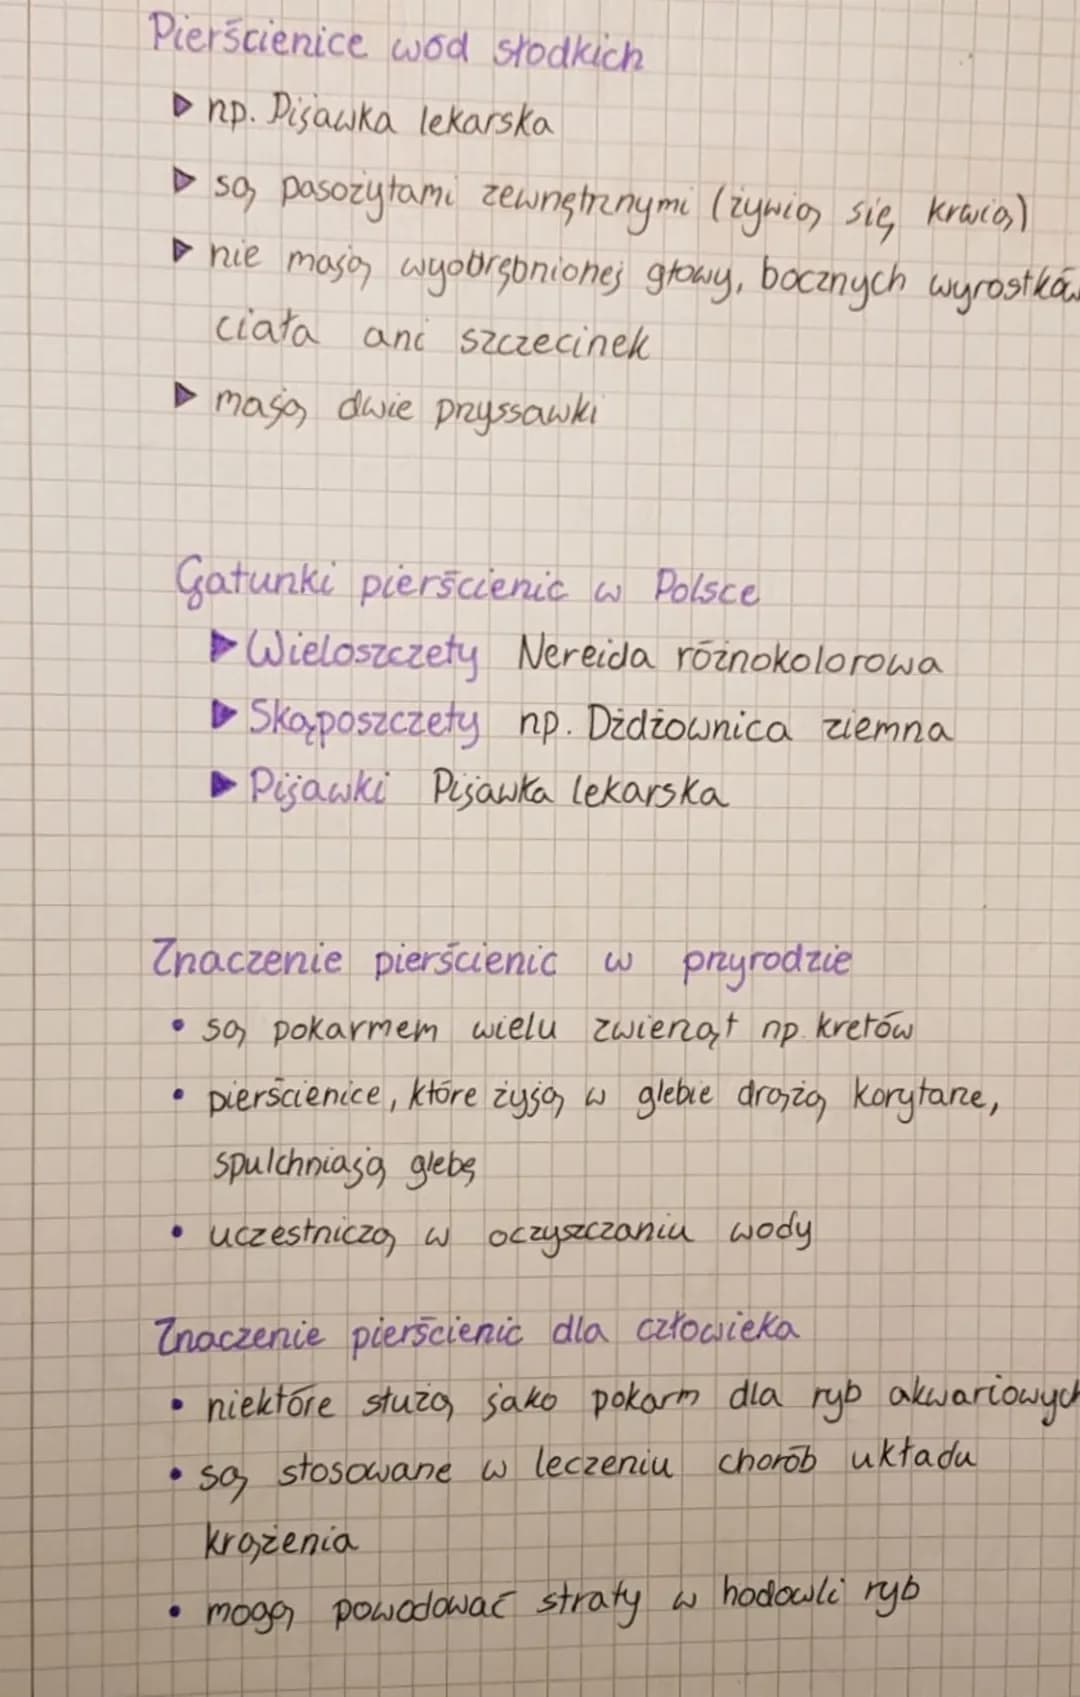 Pierścienice wód słodkich
▶ np. Pijawka lekarska
▶ są pasożytami zewnętrznymi (żywią się krwią)
▶ nie mają wyodrębnionej głowy, bocznych wyrostków
ciała ani szczecinek
▶ mają dwie przyssawki
Gatunki pierścienic w Polsce
▶ Wieloszczety Nereida różnokolorowa
▶ Skąposzczety np. Dżdżownica ziemna
▶ Pijawki Pijawka lekarska
Znaczenie pierścienic w przyrodzie
• są pokarmem wielu zwierząt np. kretów
• pierścienice, które żyją w glebie drążą korytarze,
spulchniają glebę
• uczestniczą w oczyszczaniu wody
Znaczenie pierścienic dla człowieka
• niektóre służą jako pokarm dla ryb akwariowych
• są stosowane w leczeniu chorób układu
krążenia
• mogą powodować straty w hodowli ryb